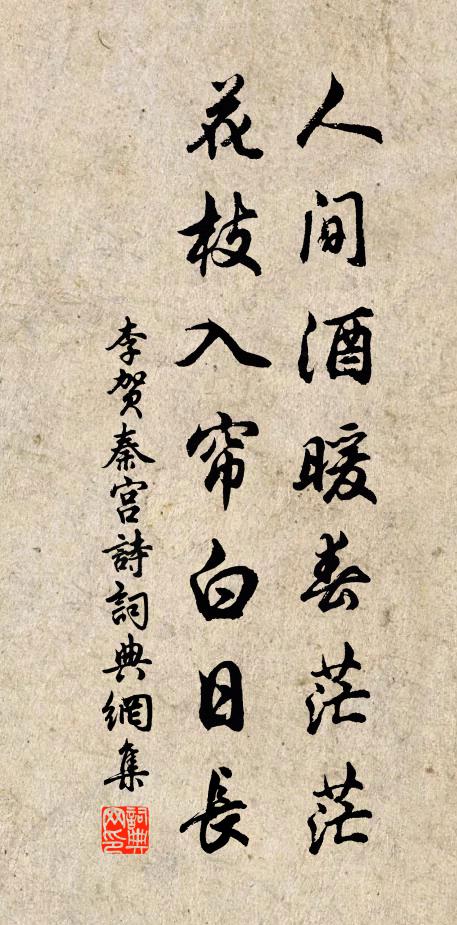 人间酒暖春茫茫
花枝入帘白日長
李贺秦宫詩詞典網集
詞典网印